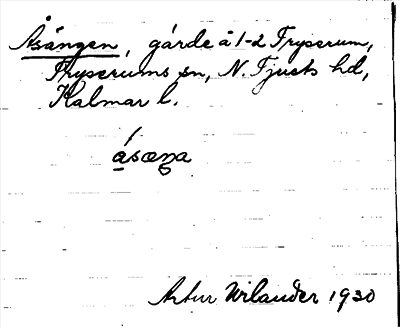 Åsängen, gärde å 1-2 Fryserum,
Fryserums sn, N. Tjusts hd,
Kalmar l.
ásæŋa
Artur Wilander 1930